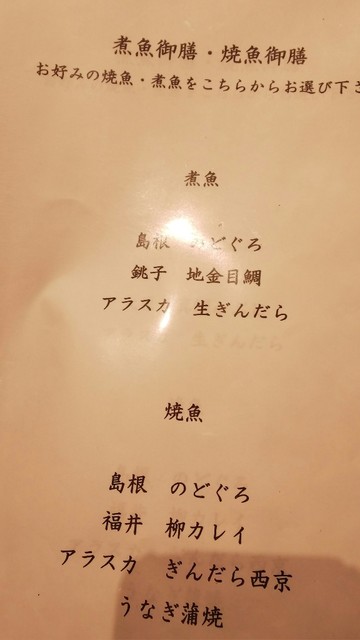 煮魚御膳・焼魚御膳
お好みの焼魚・煮魚をこちらからお選び下さ
煮魚
島根 のどぐろ
銚子 地金目鯛
アラスカ 生ぎんだら
焼魚
島根 のどぐろ
福井 柳カレイ
アラスカ ぎんだら西京
うなぎ蒲焼